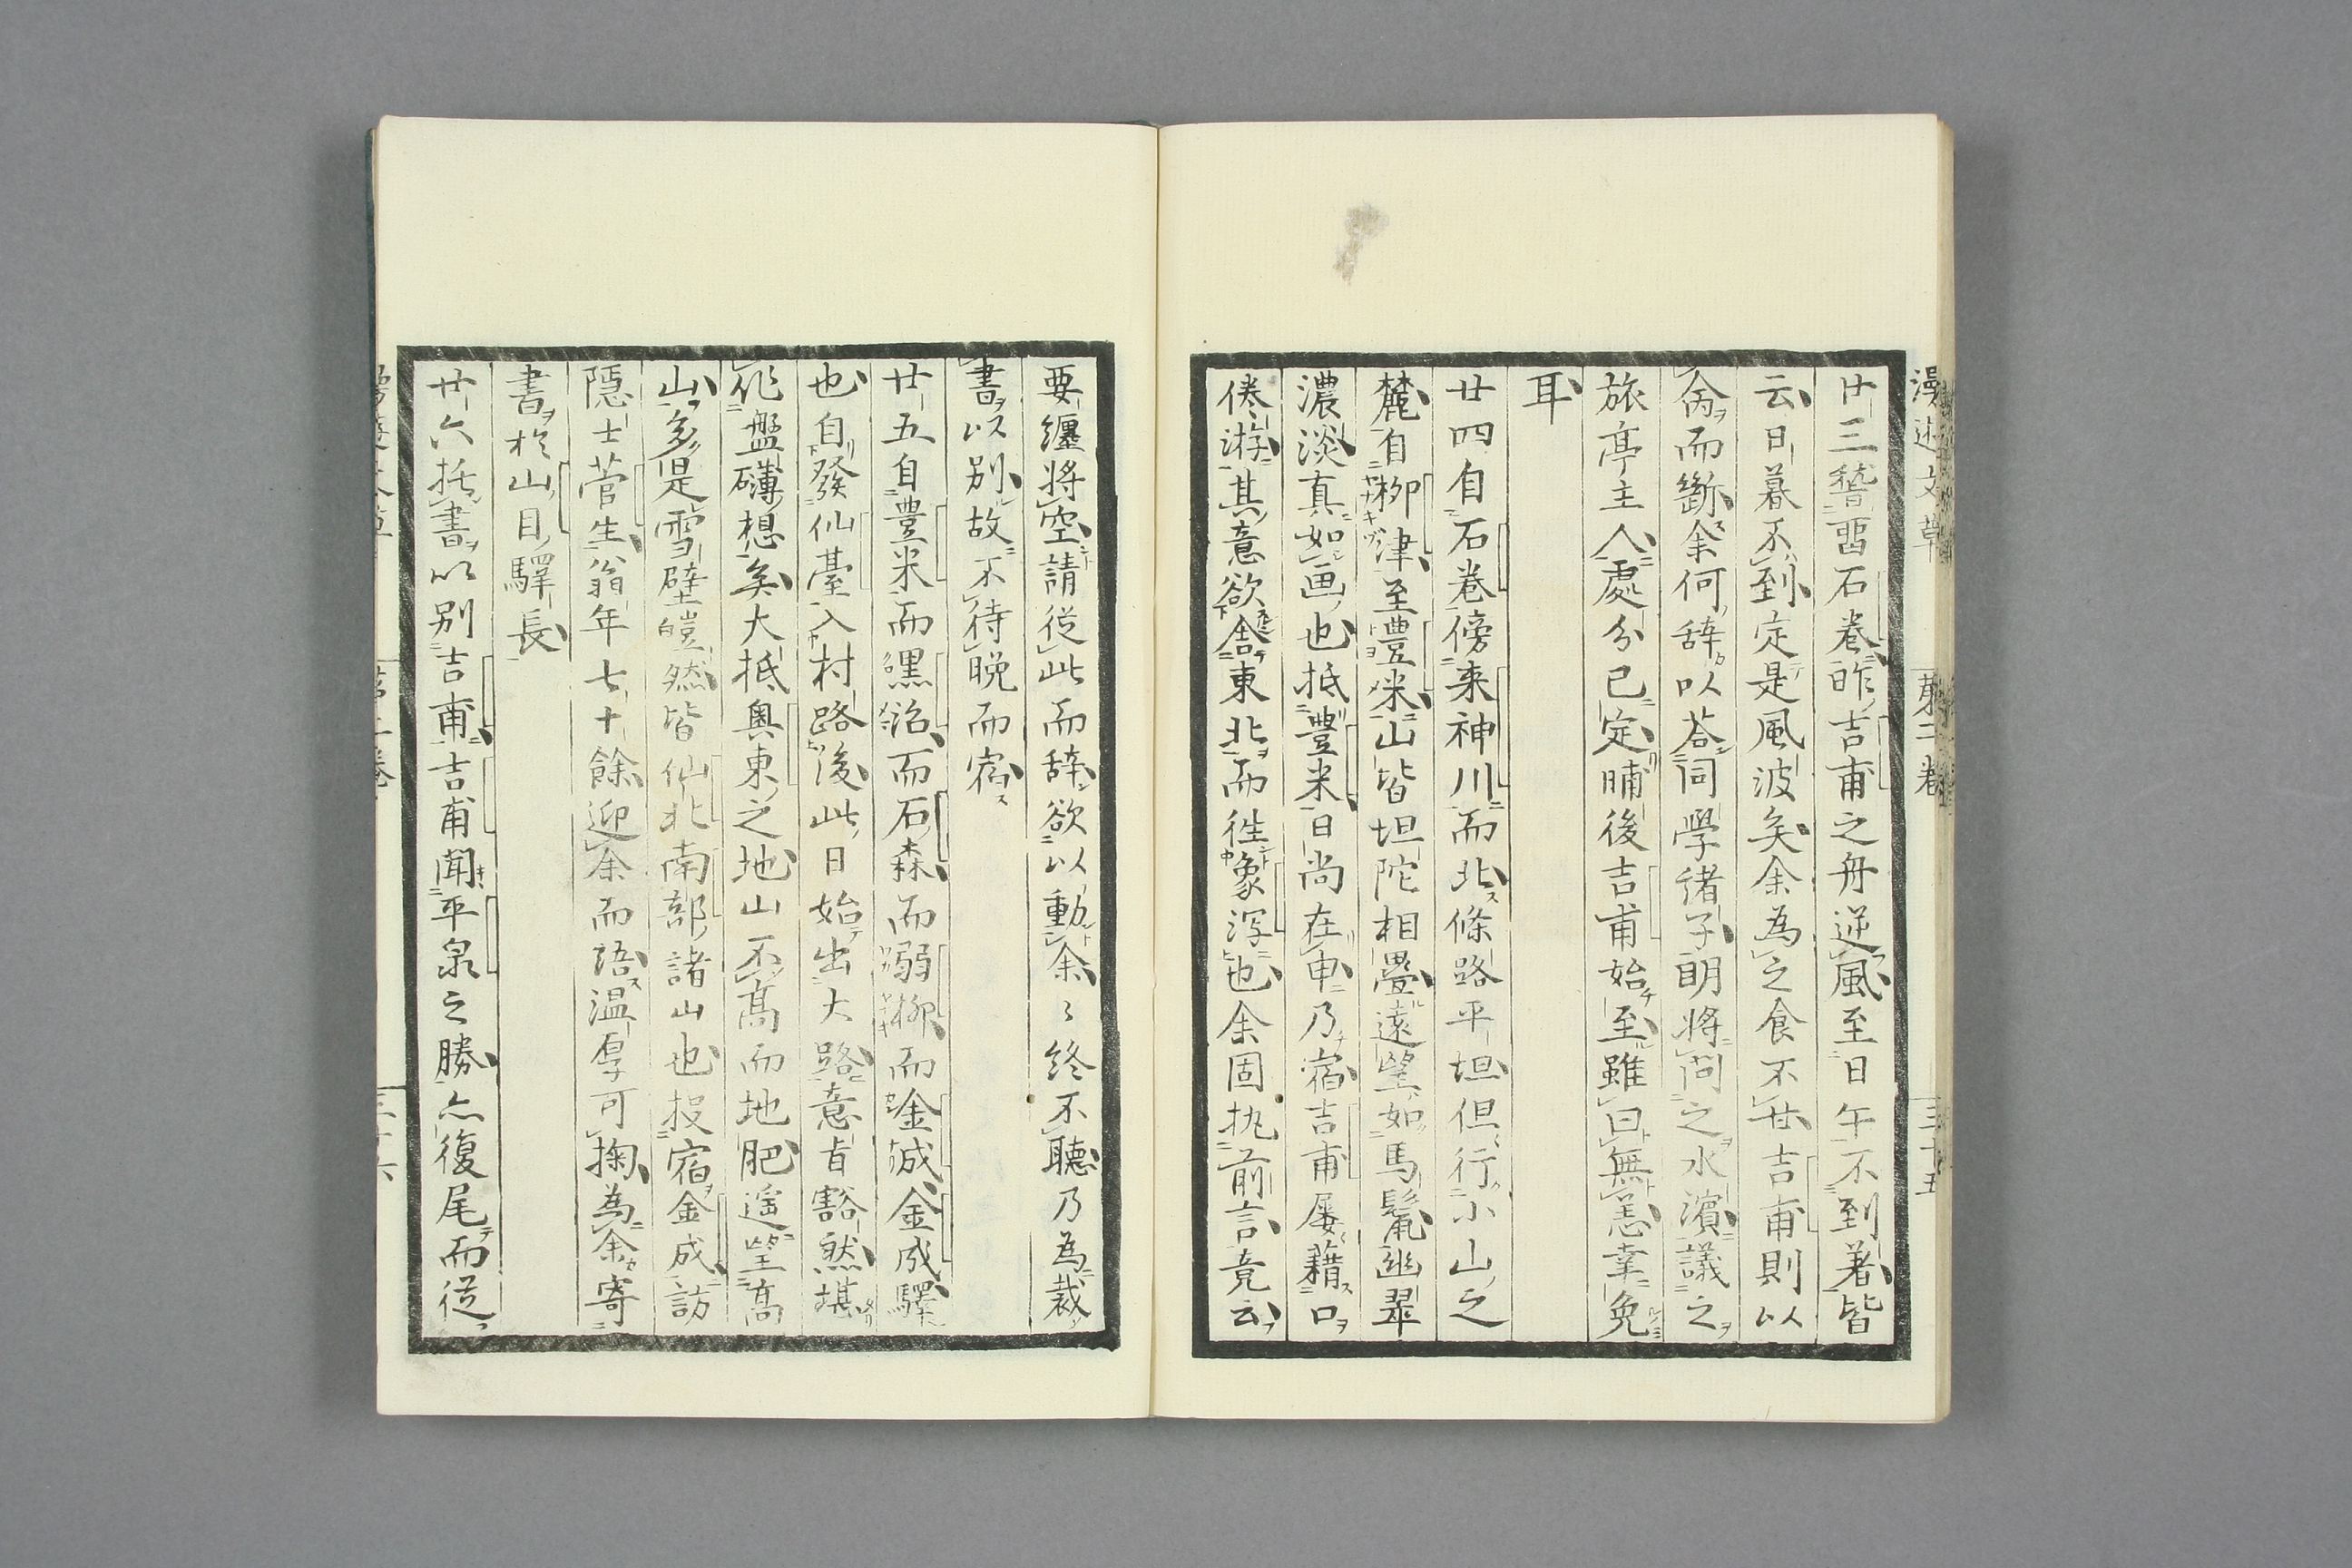 廿三瞀畱石卷昨吉甫之舟逆風至日午不到著皆
云日暮不到定是風波矣余為之食不甘吉甫則以
為而斷余何辞以荅同學緒子朙將問之水濱議之
旅亭主人處分已定晡後吉甫始至雖曰無恙幸免
耳
廿四自石卷傍来神川而北條路平坦但行小山之
麓自柳津至豐米山皆坦陀相疊遠望如馬鬣幽翠
濃淡真如画也抵豐米日尚在申乃宿吉甫屡藉口
倦游其意欲舍東北而徃象泻也余固执前言竟云
要纏將空請從此而辞欲以動余々終不聽乃為裁
書以别故不待晩而宿
廿五自豊米而黑沼而石森而溺栁而金城金成驛
也自發仙臺入村路後此日始出大路意㫖豁然堪
作盤礴想矣大抵奥東之地山不髙而地肥遥望髙
山多是雪壁皚然皆仙北南部諸山也投宿金成訪
隱士菅生翁年七十餘迎余而语温厚可掬為余寄
書於山目驛長
廿六托書以别吉甫吉甫聞平泉之勝亦復尾而從
漫遊文草
第二卷
三十五